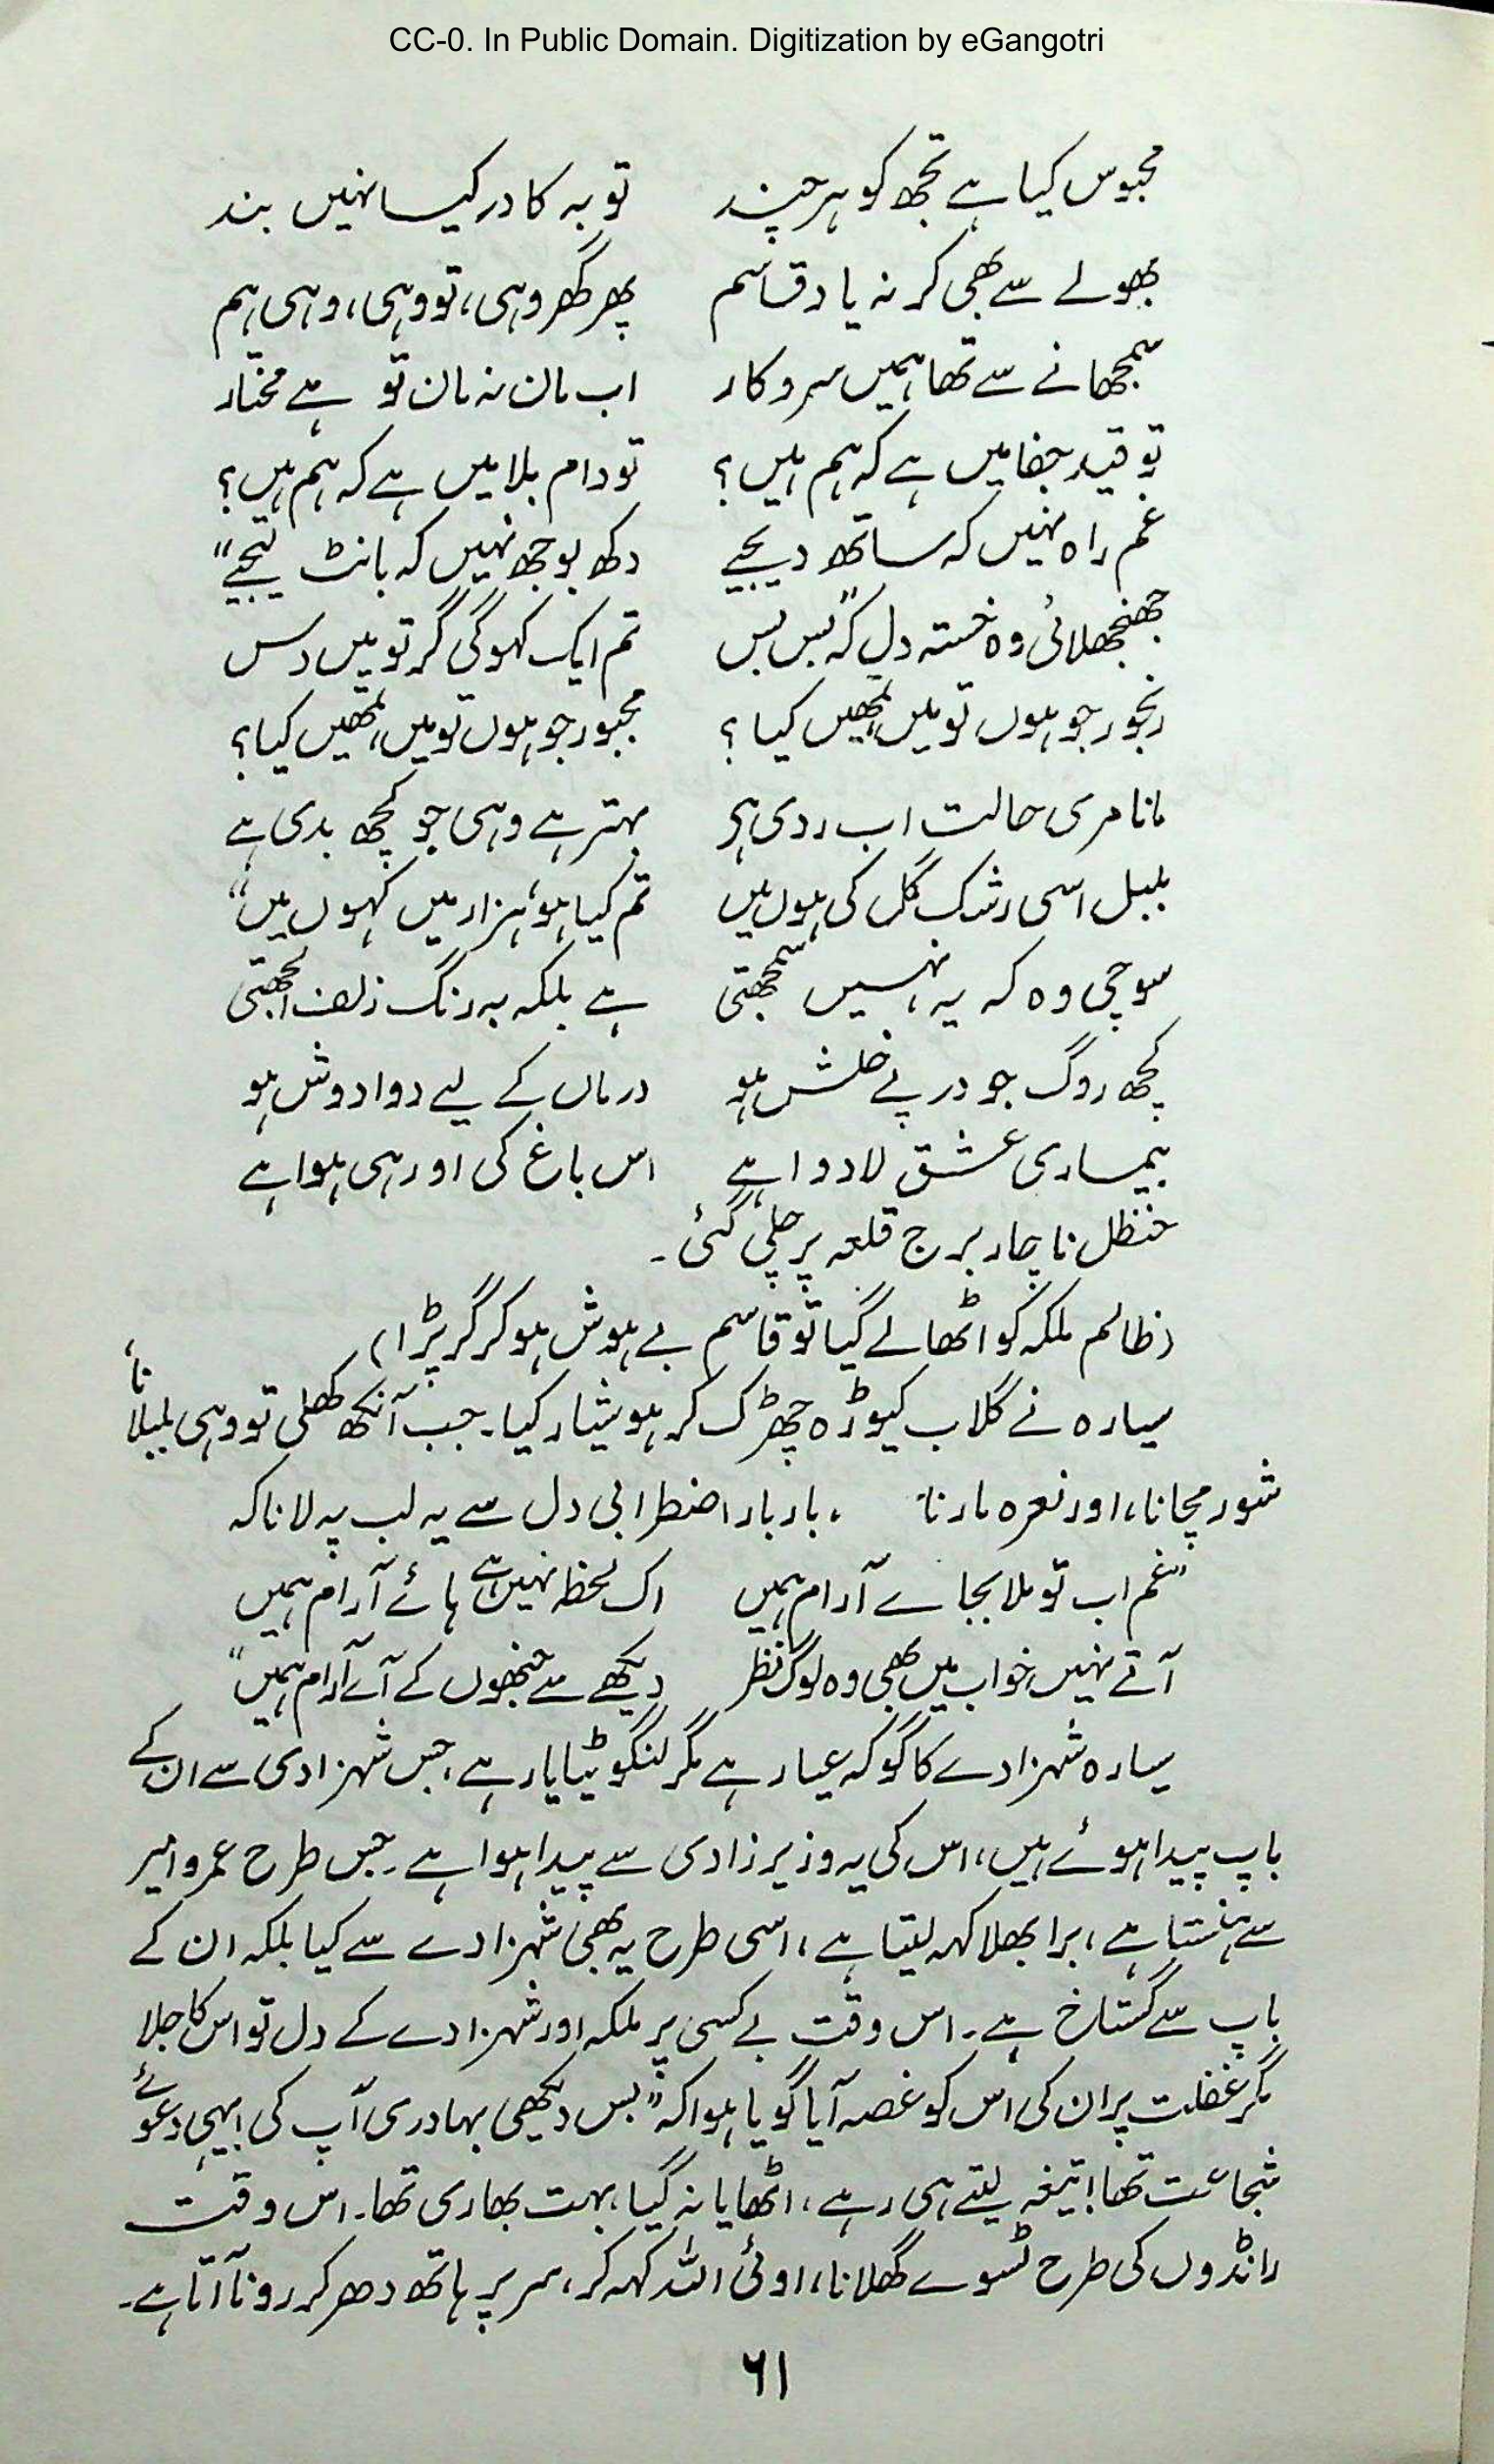 CC-0. In Public Domain. Digitization by eGangotri
محبوس کیا ہے تجھ کو ہر چند توبہ کا در کیا نہیں بند
بھولے سے بھی کر نہ یاد قاسم پھر گھر وہی، تو وہی، وہی ہم
سمجھانے سے تھا ہمیں سروکار اب مان نہ مان تو ہے مختار
تو قید جفا میں ہے کہ ہم ہیں؟ تو دام بلا میں ہے کہ ہم ہیں؟
غم راہ نہیں کہ ساتھ دیجیے دکھ بوجھ نہیں کہ بانٹ لیجیے"
جھنجھلائی وہ خستہ دل کہ "بس بس تم ایک کہو گی گر تو میں دس
رنجور جو ہوں تو میں، تمھیں کیا؟ مجبور جو ہوں تو میں، تمھیں کیا؟
مانا مری حالت اب ردی ہی بہتر ہے وہی جو کچھ بدی ہے
بلبل اسی رشک گل کی ہوں میں تم کیا ہو، ہزار میں کہوں میں"
سوچی وہ کہ یہ نہیں سمجھتی ہے بلکہ بہ رنگ زلف الجھتی
کچھ روگ جو در پے خلش ہو درماں کے لیے دوا دوش ہو
بیماری عشق لا دوا ہے اس باغ کی اور ہی ہوا ہے
حنظل ناچار برج قلعہ پر چلی گئی۔
(ظالم ملکہ کو اٹھا لے گیا تو قاسم بے ہوش ہو کر گر پڑا)
سیارہ نے گلاب کیوڑہ چھڑک کر ہوشیار کیا۔ جب آنکھ کھلی تو وہی بلبلانا،
شور مچانا، اور نعرہ مارنا، بار بار اضطرابی دل سے یہ لب پہ لانا کہ
"غم اب تو ملا بجاے آرام ہمیں اک لحظہ نہیں ہے ہائے آرام ہمیں
آتے نہیں خواب میں بھی وہ لوگ نظر دیکھے سے جنھوں کے آے آرام ہمیں"
سیارہ شہزادے کا گو کہ عیار ہے مگر لنگوٹیا یار ہے، جس شہزادی سے ان کے
باپ پیدا ہوئے ہیں، اس کی یہ وزیر زادی سے پیدا ہوا ہے۔ جس طرح عمرو امیر
سے ہنستا ہے، برا بھلا کہہ لیتا ہے، اسی طرح یہ بھی شہزادے سے کیا بلکہ ان کے
باپ سے گستاخ ہے۔ اس وقت بے کسی پر ملکہ اور شہزادے کے دل تو اس کا جلا
مگر غفلت پر ان کی اس کو غصہ آیا گویا ہوا کہ "بس دیکھی بہادری آپ کی! یہی دعوئے
شجاعت تھا! تیغہ لیتے ہی رہے، اٹھایا نہ گیا، بہت بھاری تھا۔ اس وقت
رانڈوں کی طرح ٹسوے گھلانا، اوئی اللہ کہہ کر، سر پر ہاتھ دھر کر رونا آتا ہے۔
۶۱